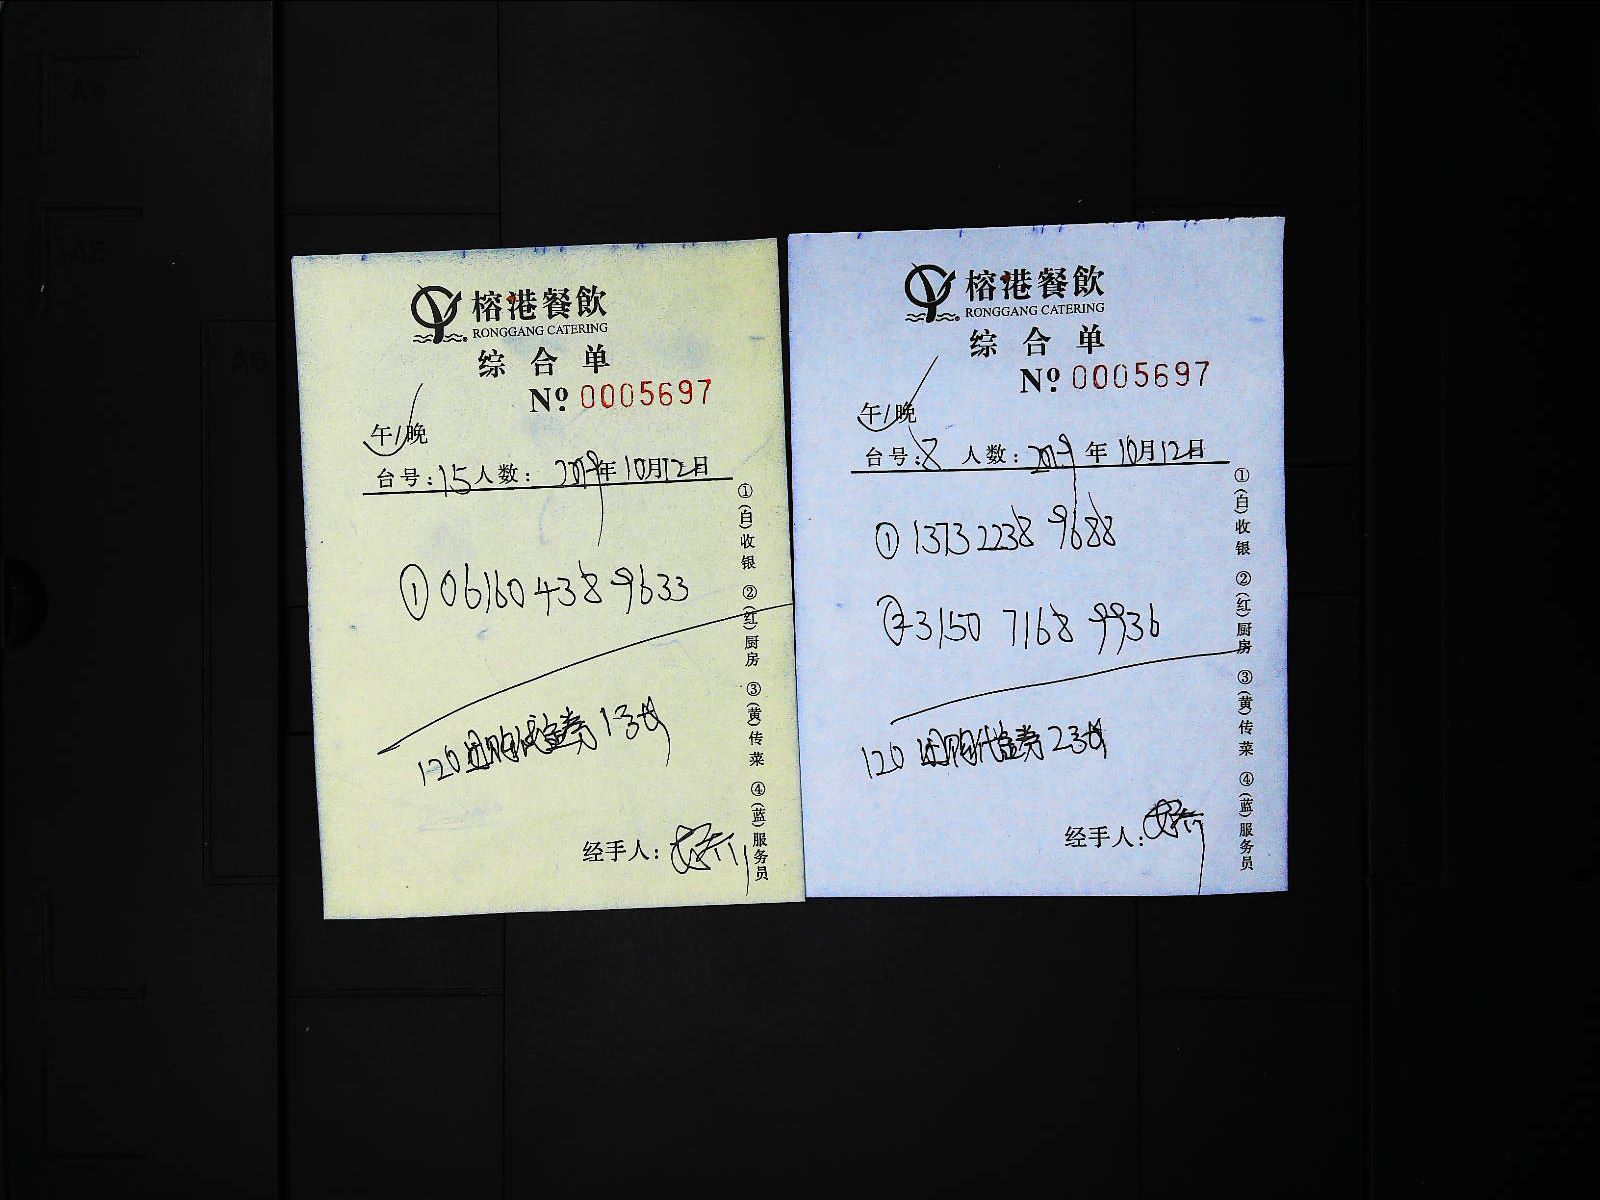 榕港餐飲
RONGGANG CATERING
综合单
Nº 0005697
午/晚
台号:15人数: 2019年10月12日
① 06160 438 9633
120团购代金券1张
经手人:
①(白)收银 ②(红)厨房 ③(黄)传菜 ④(蓝)服务员
榕港餐飲
RONGGANG CATERING
综合单
Nº 0005697
午/晚
台号:8 人数: 2019年10月12日
① 1373 2238 9688
② 3150 7168 9936
120团购代金券2张
经手人:
①(白)收银 ②(红)厨房 ③(黄)传菜 ④(蓝)服务员